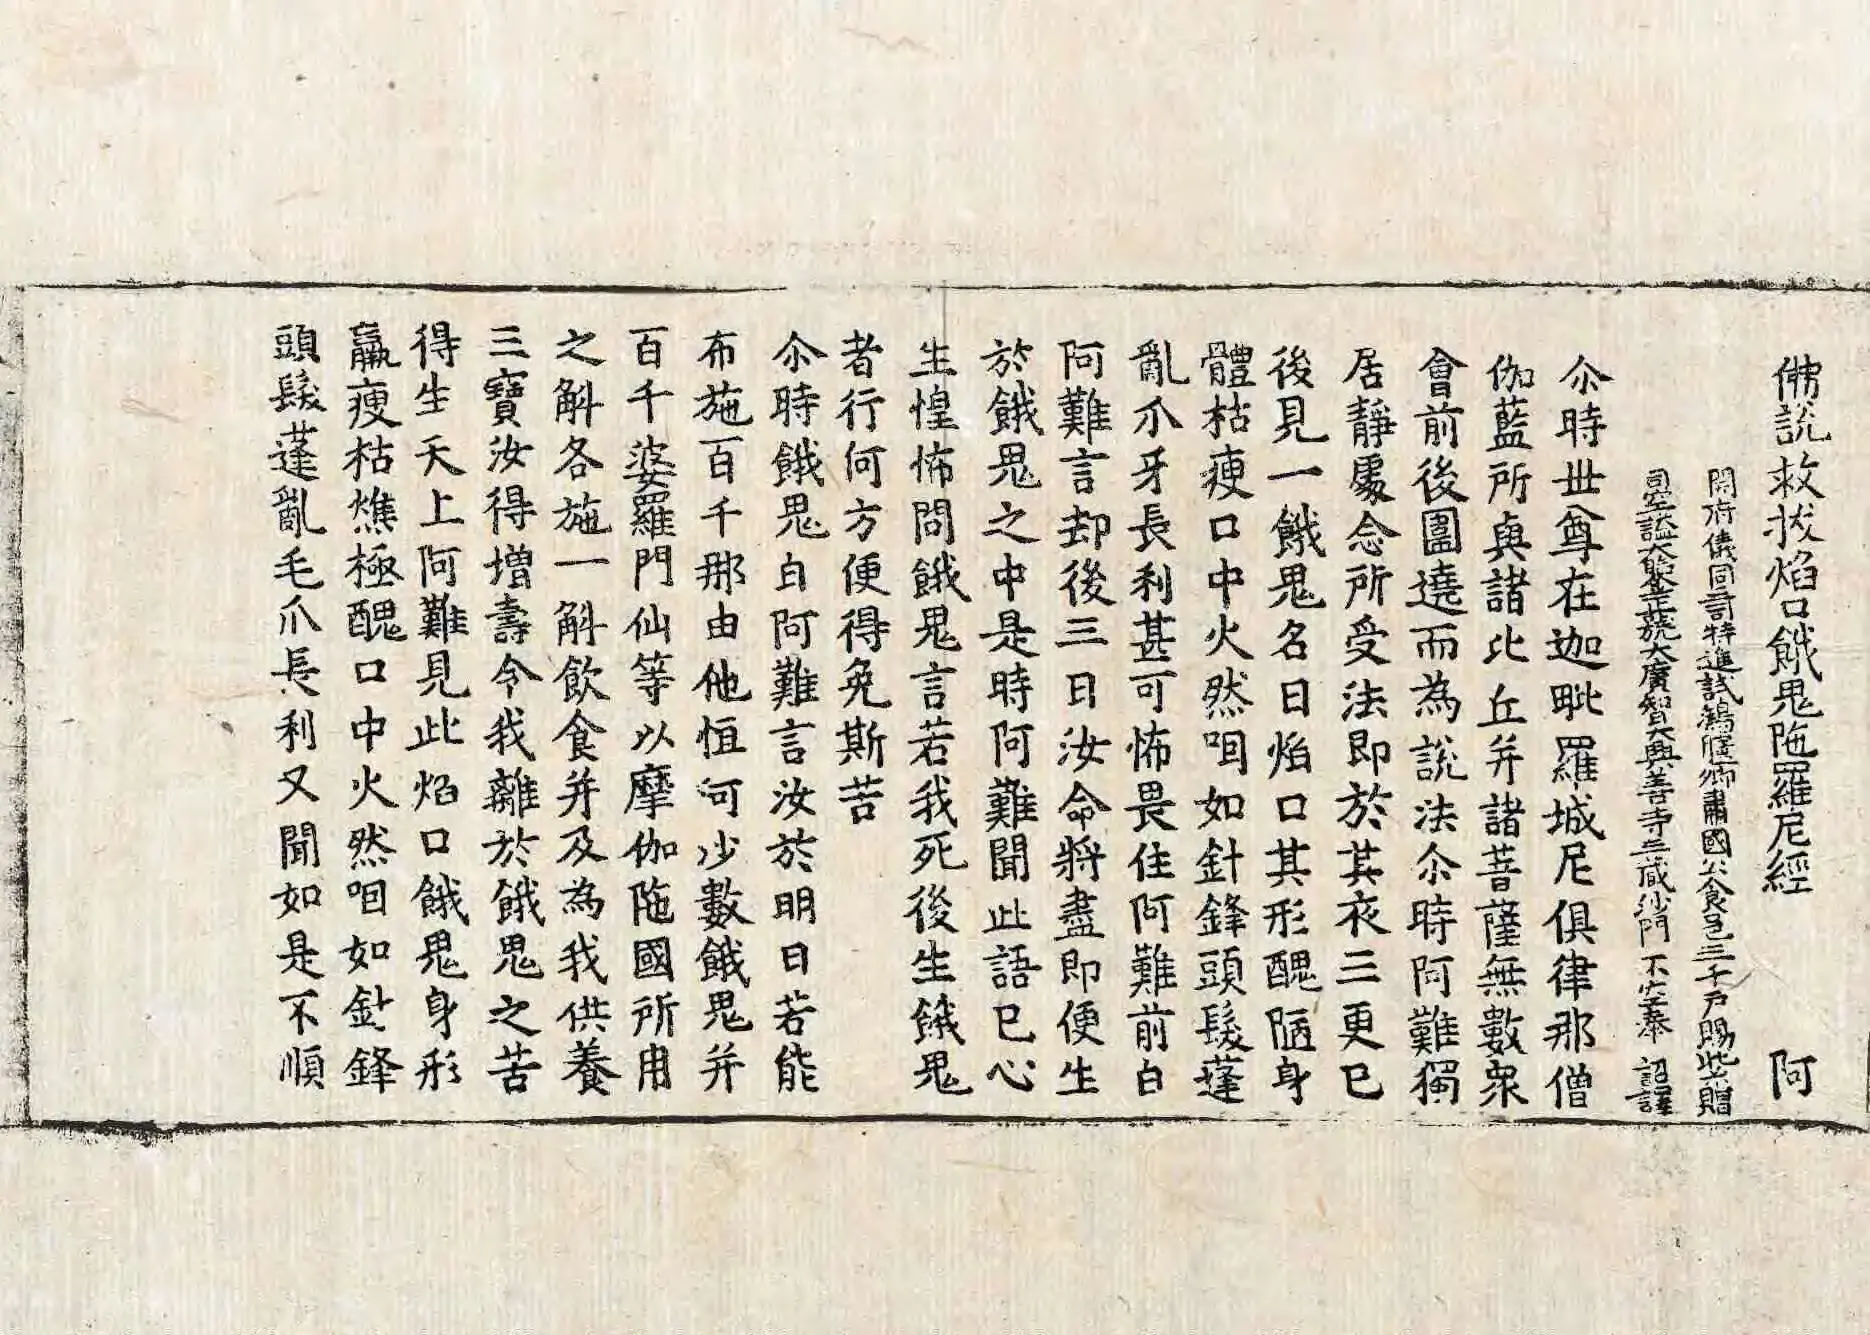 佛說救拔焰口餓鬼陁羅尼經　阿
開府儀同三司特進試鴻臚卿肅國公食邑三千戶賜紫贈
司空謚大鑒正號大廣智大興善寺三藏沙門不空奉　詔譯
尒時世尊在迦毗羅城尼俱律那僧
伽藍所與諸比丘并諸菩薩無數衆
會前後圍遶而為說法尒時阿難獨
居靜處念所受法即於其夜三更已
後見一餓鬼名曰焰口其形醜陋身
體枯瘦口中火然咽如針鋒頭髮蓬
亂爪牙長利甚可怖畏住阿難前白
阿難言却後三日汝命將盡即便生
於餓鬼之中是時阿難聞此語已心
生惶怖問餓鬼言若我死後生餓鬼
者行何方便得免斯苦
尒時餓鬼白阿難言汝於明日若能
布施百千那由他恒河沙數餓鬼并
百千婆羅門仙等以摩伽陁國所用
之斛各施一斛飲食并及為我供養
三寶汝得增壽令我離於餓鬼之苦
得生天上阿難見此焰口餓鬼身形
羸瘦枯燋極醜口中火然咽如針鋒
頭髮蓬亂毛爪長利又聞如是不順